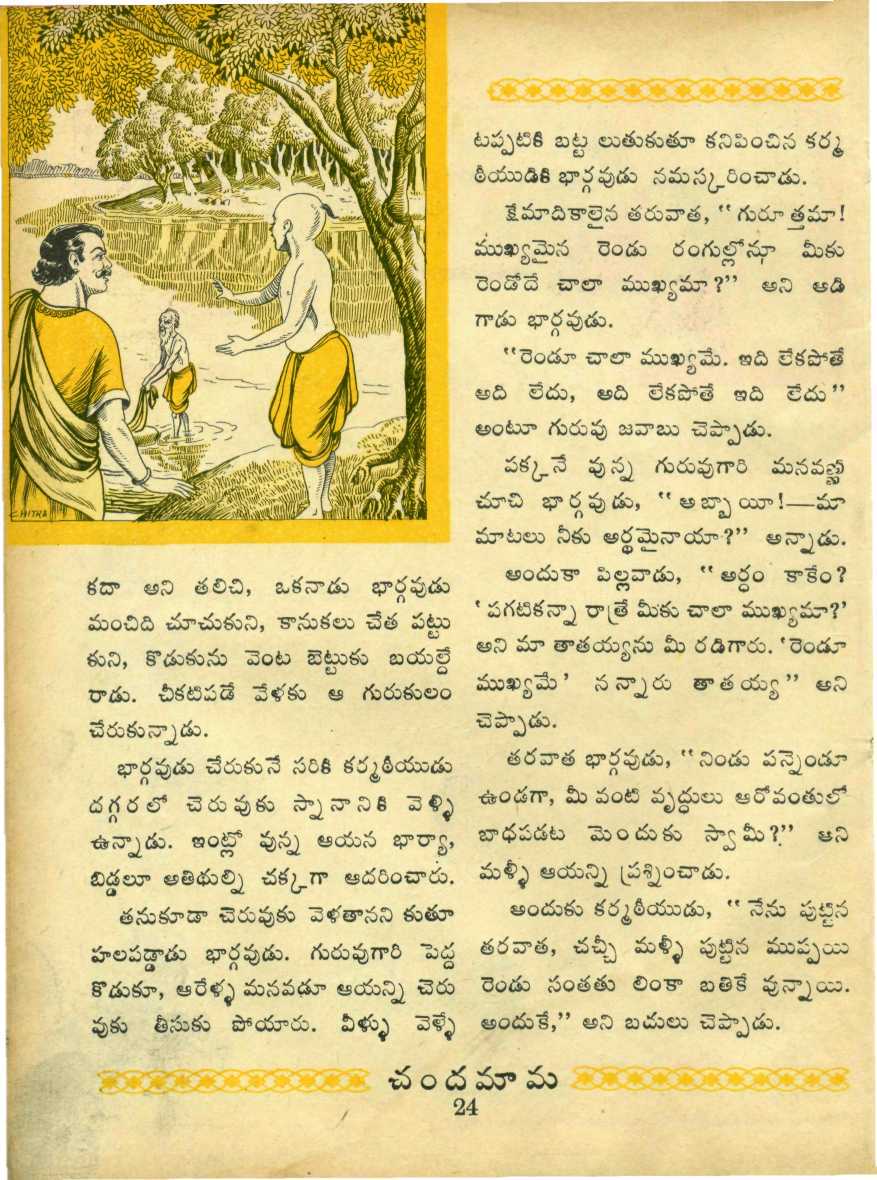 CHITRA
కదా అని తలిచి, ఒకనాడు భార్గవుడు
మంచిది చూచుకుని, కానుకలు చేత పట్టు
కుని, కొడుకును వెంట బెట్టుకు బయల్దే
రాడు. చీకటిపడే వేళకు ఆ గురుకులం
చేరుకున్నాడు.
భార్గవుడు చేరుకునే సరికి కర్మఠీయుడు
దగ్గరలో చెరువుకు స్నానానికి వెళ్ళి
ఉన్నాడు. ఇంట్లో వున్న ఆయన భార్యా,
బిడ్డలూ అతిథుల్ని చక్కగా ఆదరించారు.
తనుకూడా చెరువుకు వెళతానని కుతూ
హలపడ్డాడు భార్గవుడు. గురువుగారి పెద్ద
కొడుకూ, ఆరేళ్ళ మనవడూ ఆయన్ని చెరు
వుకు తీసుకు పోయారు. వీళ్ళు వెళ్ళే
టప్పటికి బట్ట లుతుకుతూ కనిపించిన కర్మ
ఠీయుడికి భార్గవుడు నమస్కరించాడు.
క్షేమాదికాలైన తరువాత, “గురూత్తమా!
ముఖ్యమైన రెండు రంగుల్లోనూ మీకు
రెండోదే చాలా ముఖ్యమా?” అని అడి
గాడు భార్గవుడు.
“రెండూ చాలా ముఖ్యమే. ఇది లేకపోతే
అది లేదు, అది లేకపోతే ఇది లేదు”
అంటూ గురువు జవాబు చెప్పాడు.
పక్కనే వున్న గురువుగారి మనవణ్ణి
చూచి భార్గవుడు, “అబ్బాయీ!—మా
మాటలు నీకు అర్థమైనాయా?” అన్నాడు.
అందుకా పిల్లవాడు, “అర్ధం కాకేం?
‘పగటికన్నా రాత్రే మీకు చాలా ముఖ్యమా?’
అని మా తాతయ్యను మీ రడిగారు. ‘రెండూ
ముఖ్యమే’ నన్నారు తాతయ్య” అని
చెప్పాడు.
తరవాత భార్గవుడు, “నిండు పన్నెండూ
ఉండగా, మీ వంటి వృద్ధులు ఆరోవంతులో
బాధపడట మెందుకు స్వామీ?” అని
మళ్ళీ ఆయన్ని ప్రశ్నించాడు.
అందుకు కర్మఠీయుడు, “నేను పుట్టిన
తరవాత, చచ్చీ మళ్ళీ పుట్టిన ముప్పయి
రెండు సంతతు లింకా బతికే వున్నాయి.
అందుకే,” అని బదులు చెప్పాడు.
చందమామ
24